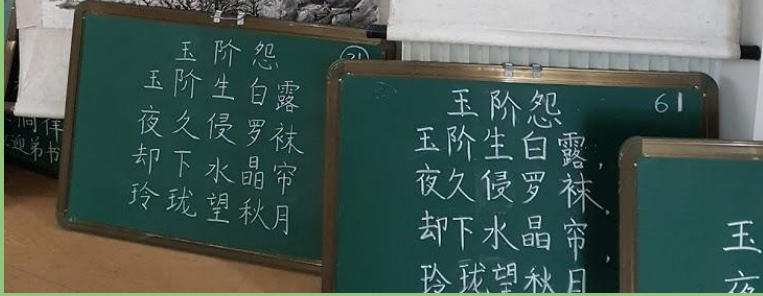 玉阶怨
21
玉阶生白露
夜久侵罗袜
却下水晶帘
玲珑望秋月
玉阶怨
61
玉阶生白露,
夜久侵罗袜.
却下水晶帘,
玲珑望秋月
玉
夜